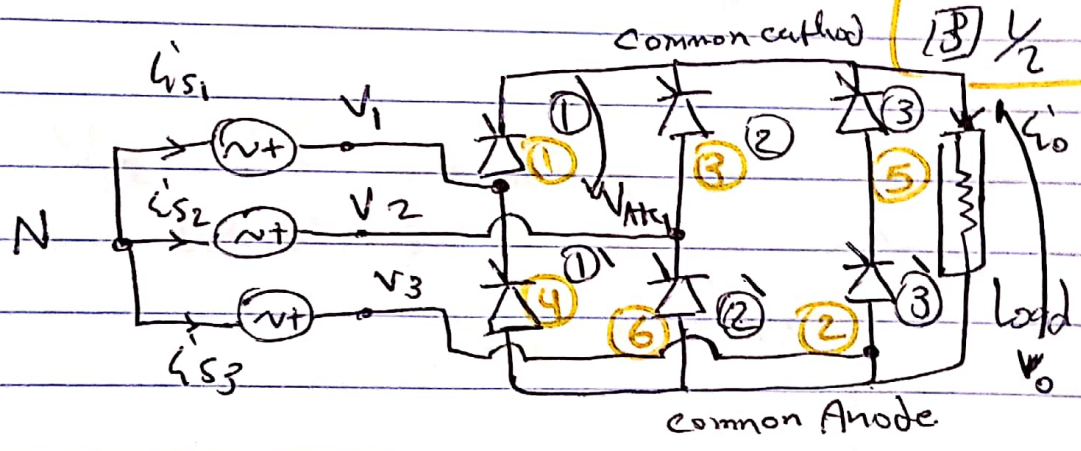 Common cathod [B] 1/2
is1 V1 ① ② ③ io
① ③ ⑤
is2 V2 VAK1
N
①` ②` ③`
④ ⑥ ②
V3 Load
is3 Vo
common Anode